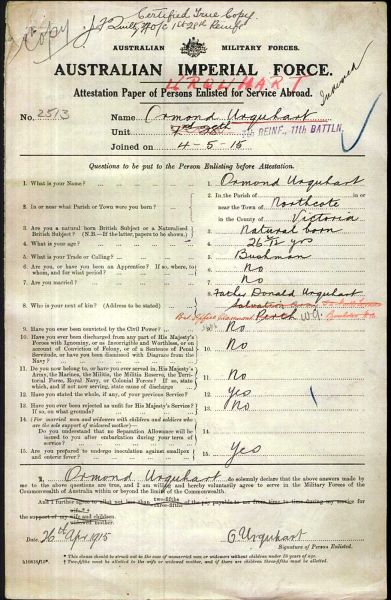 Copy
Certified True Copy
AUSTRALIAN MILITARY FORCES.
AUSTRALIAN IMPERIAL FORCE.
URQUHART
Indexed
Attestation Paper of Persons Enlisted for Service Abroad.
No. 2513 Name Ormond Urquhart
Unit 7th REINF. 11th BATTLN.
Joined on 4-5-15
Questions to be put to the Person Enlisting before Attestation.
1. What is your Name? 1. Ormond Urquhart
2. In or near what Parish or Town were you born? 2. In the Parish of
near the Town of Northcote
in the County of Victoria
3. Are you a natural born British Subject or a Naturalised 3. Natural born
British Subject? (N.B.—If the latter, papers to be shown.)
4. What is your age? 4. yrs
5. What is your Trade or Calling? 5. Bushman
6. Are you, or have you been an Apprentice? If so, where, to 6. No
whom, and for what period?
7. Are you married? 7. No
8. Who is your next of kin? (Address to be stated) 8. Father Donald Urquhart
Salvation Army
Perth WA
9. Have you ever been convicted by the Civil Power? 9. No
10. Have you ever been discharged from any part of His Majesty's 10. No
Forces with Ignominy, or as Incorrigible and Worthless, or on
account of Conviction of Felony, or of a Sentence of Penal
Servitude, or have you been Dismissed with Disgrace from the
Navy?
11. Do you now belong to, or have you ever served in, His Majesty's 11. No
Army, the Marines, the Militia, the Militia Reserve, the Territorial
Force, Royal Navy, or Colonial Forces? If so, state
which, and if not now serving, state cause of discharge
12. Have you stated the whole, if any, of your previous Service? 12. Yes
13. Have you ever been rejected as unfit for His Majesty's Service? 13. No
If so, on what grounds?
14. (For married men and widowers with children and soldiers who are 14.
the sole support of widowed mother)—
Do you understand that no Separation Allowance will be
issued to you after embarkation during your term of
service?
15. Are you prepared to undergo inoculation against smallpox 15. Yes
and enteric fever?
I, Ormond Urquhart do solemnly declare that the above answers made by
me to the above questions are true, and I am willing and hereby voluntarily agree to serve in the Military Forces of the
Commonwealth of Australia within or beyond the limits of the Commonwealth.
And I further agree to allot not less than two-fifths three-fifths of the pay payable to me from time to time during my service for
the support of my wife and children. widowed mother.
Date, 26th Apr 1915 O. Urquhart
Signature of Person Enlisted.
* This clause should be struck out in the case of unmarried men or widowers without children under 18 years of age.
† Two-fifths must be allotted to the wife or widowed mother, and if there are children three-fifths must be allotted.